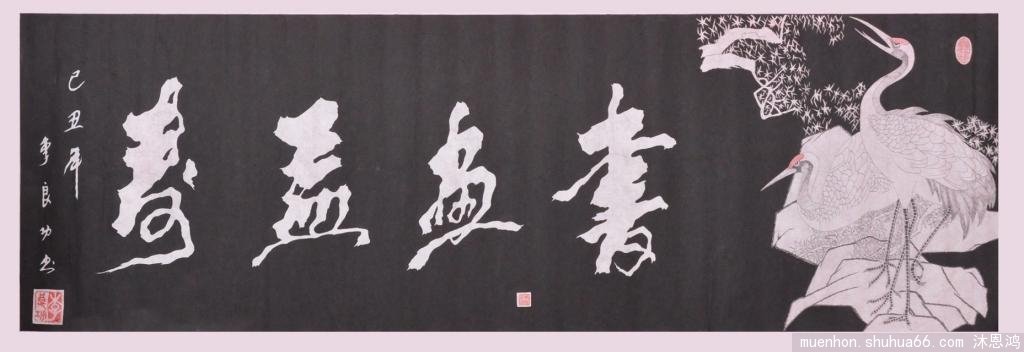 書畫益壽
己丑年
李良功书
muenhon.shuhua66.com 沐恩鸿